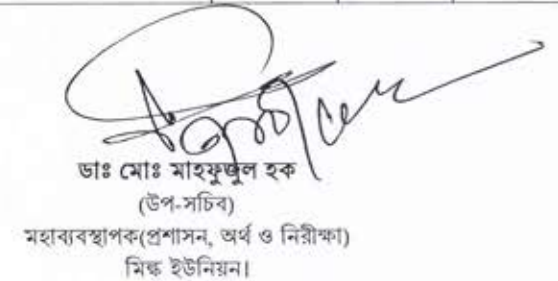 ডাঃ মোঃ মাহফুজুল হক
(উপ-সচিব)
মহাব্যবস্থাপক(প্রশাসন, অর্থ ও নিরীক্ষা)
মিল্ক ইউনিয়ন।